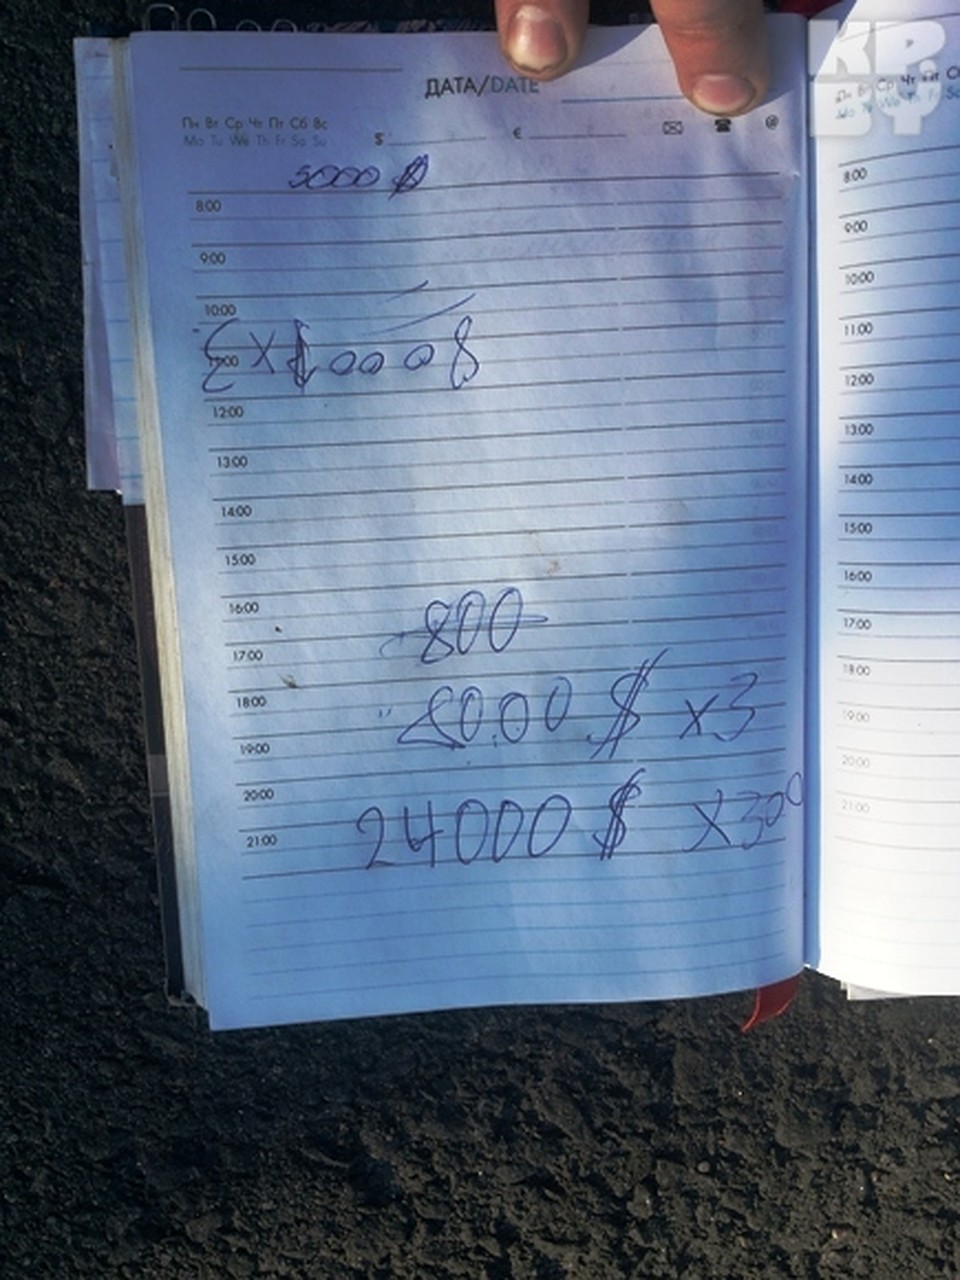 ДАТА/DATE
Пн Вт Ср Чт Пт Сб Вс
Mo Tu We Th Fr Sa Su
$ €
5000 $
8:00
9:00
10:00
11:00
8000$ x 3
12:00
13:00
14:00
15:00
16:00
800
17:00
18:00
8000 $ x3
19:00
20:00
24000 $ x30
21:00
KP.
BY
Пн Вт Ср Чт Пт Сб
Mo Tu We Th Fr Sa
8:00
9:00
10:00
11:00
12:00
13:00
14:00
15:00
16:00
17:00
18:00
19:00
20:00
21:00